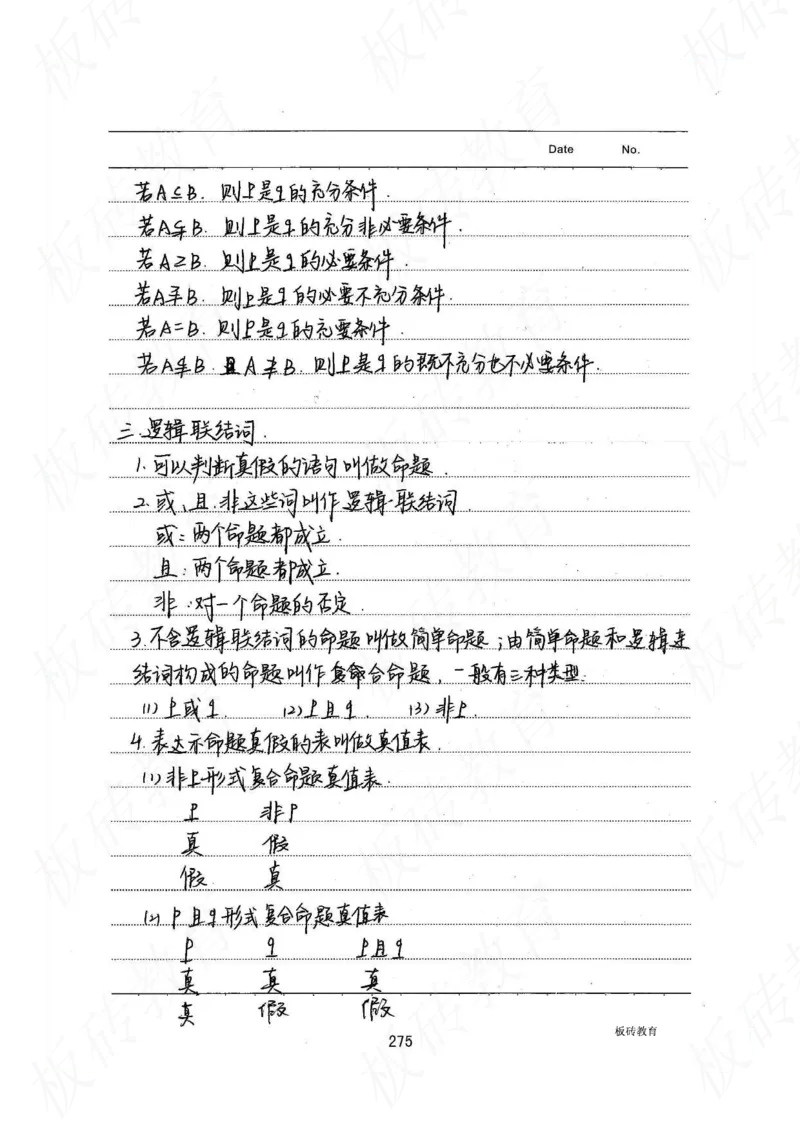 Date No.
若A⊆B. 则p是q的充分条件.
若A⫋B. 则p是q的充分非必要条件.
若A⊇B. 则p是q的必要条件.
若A⫌B. 则p是q的必要不充分条件.
若A=B. 则p是q的充要条件.
若A⊈B. 且A⊉B. 则p是q的既不充分也不必要条件.
三. 逻辑联结词.
1. 可以判断真假的语句叫做命题.
2. 或、且、非这些词叫作逻辑联结词.
或: 两个命题都成立.
且: 两个命题都成立.
非: 对一个命题的否定.
3. 不含逻辑联结词的命题叫做简单命题; 由简单命题和逻辑连
结词构成的命题叫作复合命题, 一般有三种类型.
(1) p或q. (2) p且q. (3) 非p.
4. 表达示命题真假的表叫做真值表.
(1) 非p形式复合命题真值表.
p 非p
真 假
假 真
(2) p且q形式复合命题真值表
p q p且q
真 真 真
真 假 假
275
板砖教育